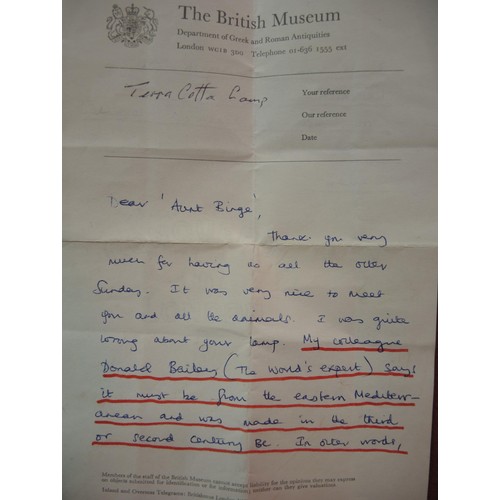 The British Museum
Department of Greek and Roman Antiquities
London WC1B 3DG Telephone 01-636 1555 ext
Terra Cotta Lamp
Your reference
Our reference
Date
Dear 'Aunt Binge',
Thank you very
much for having us all the other
Sunday. It was very nice to meet
you and all the animals. I was quite
wrong about your lamp. My colleague
Donald Bailey (The World's expert) says
it must be from the eastern Mediterr-
anean and was made in the third
or second century BC. In other words,
Members of the staff of the British Museum cannot accept liability for the opinions that may express
on objects submitted for identification or for information; neither can they give valuations
Inland and Overseas Telegrams: